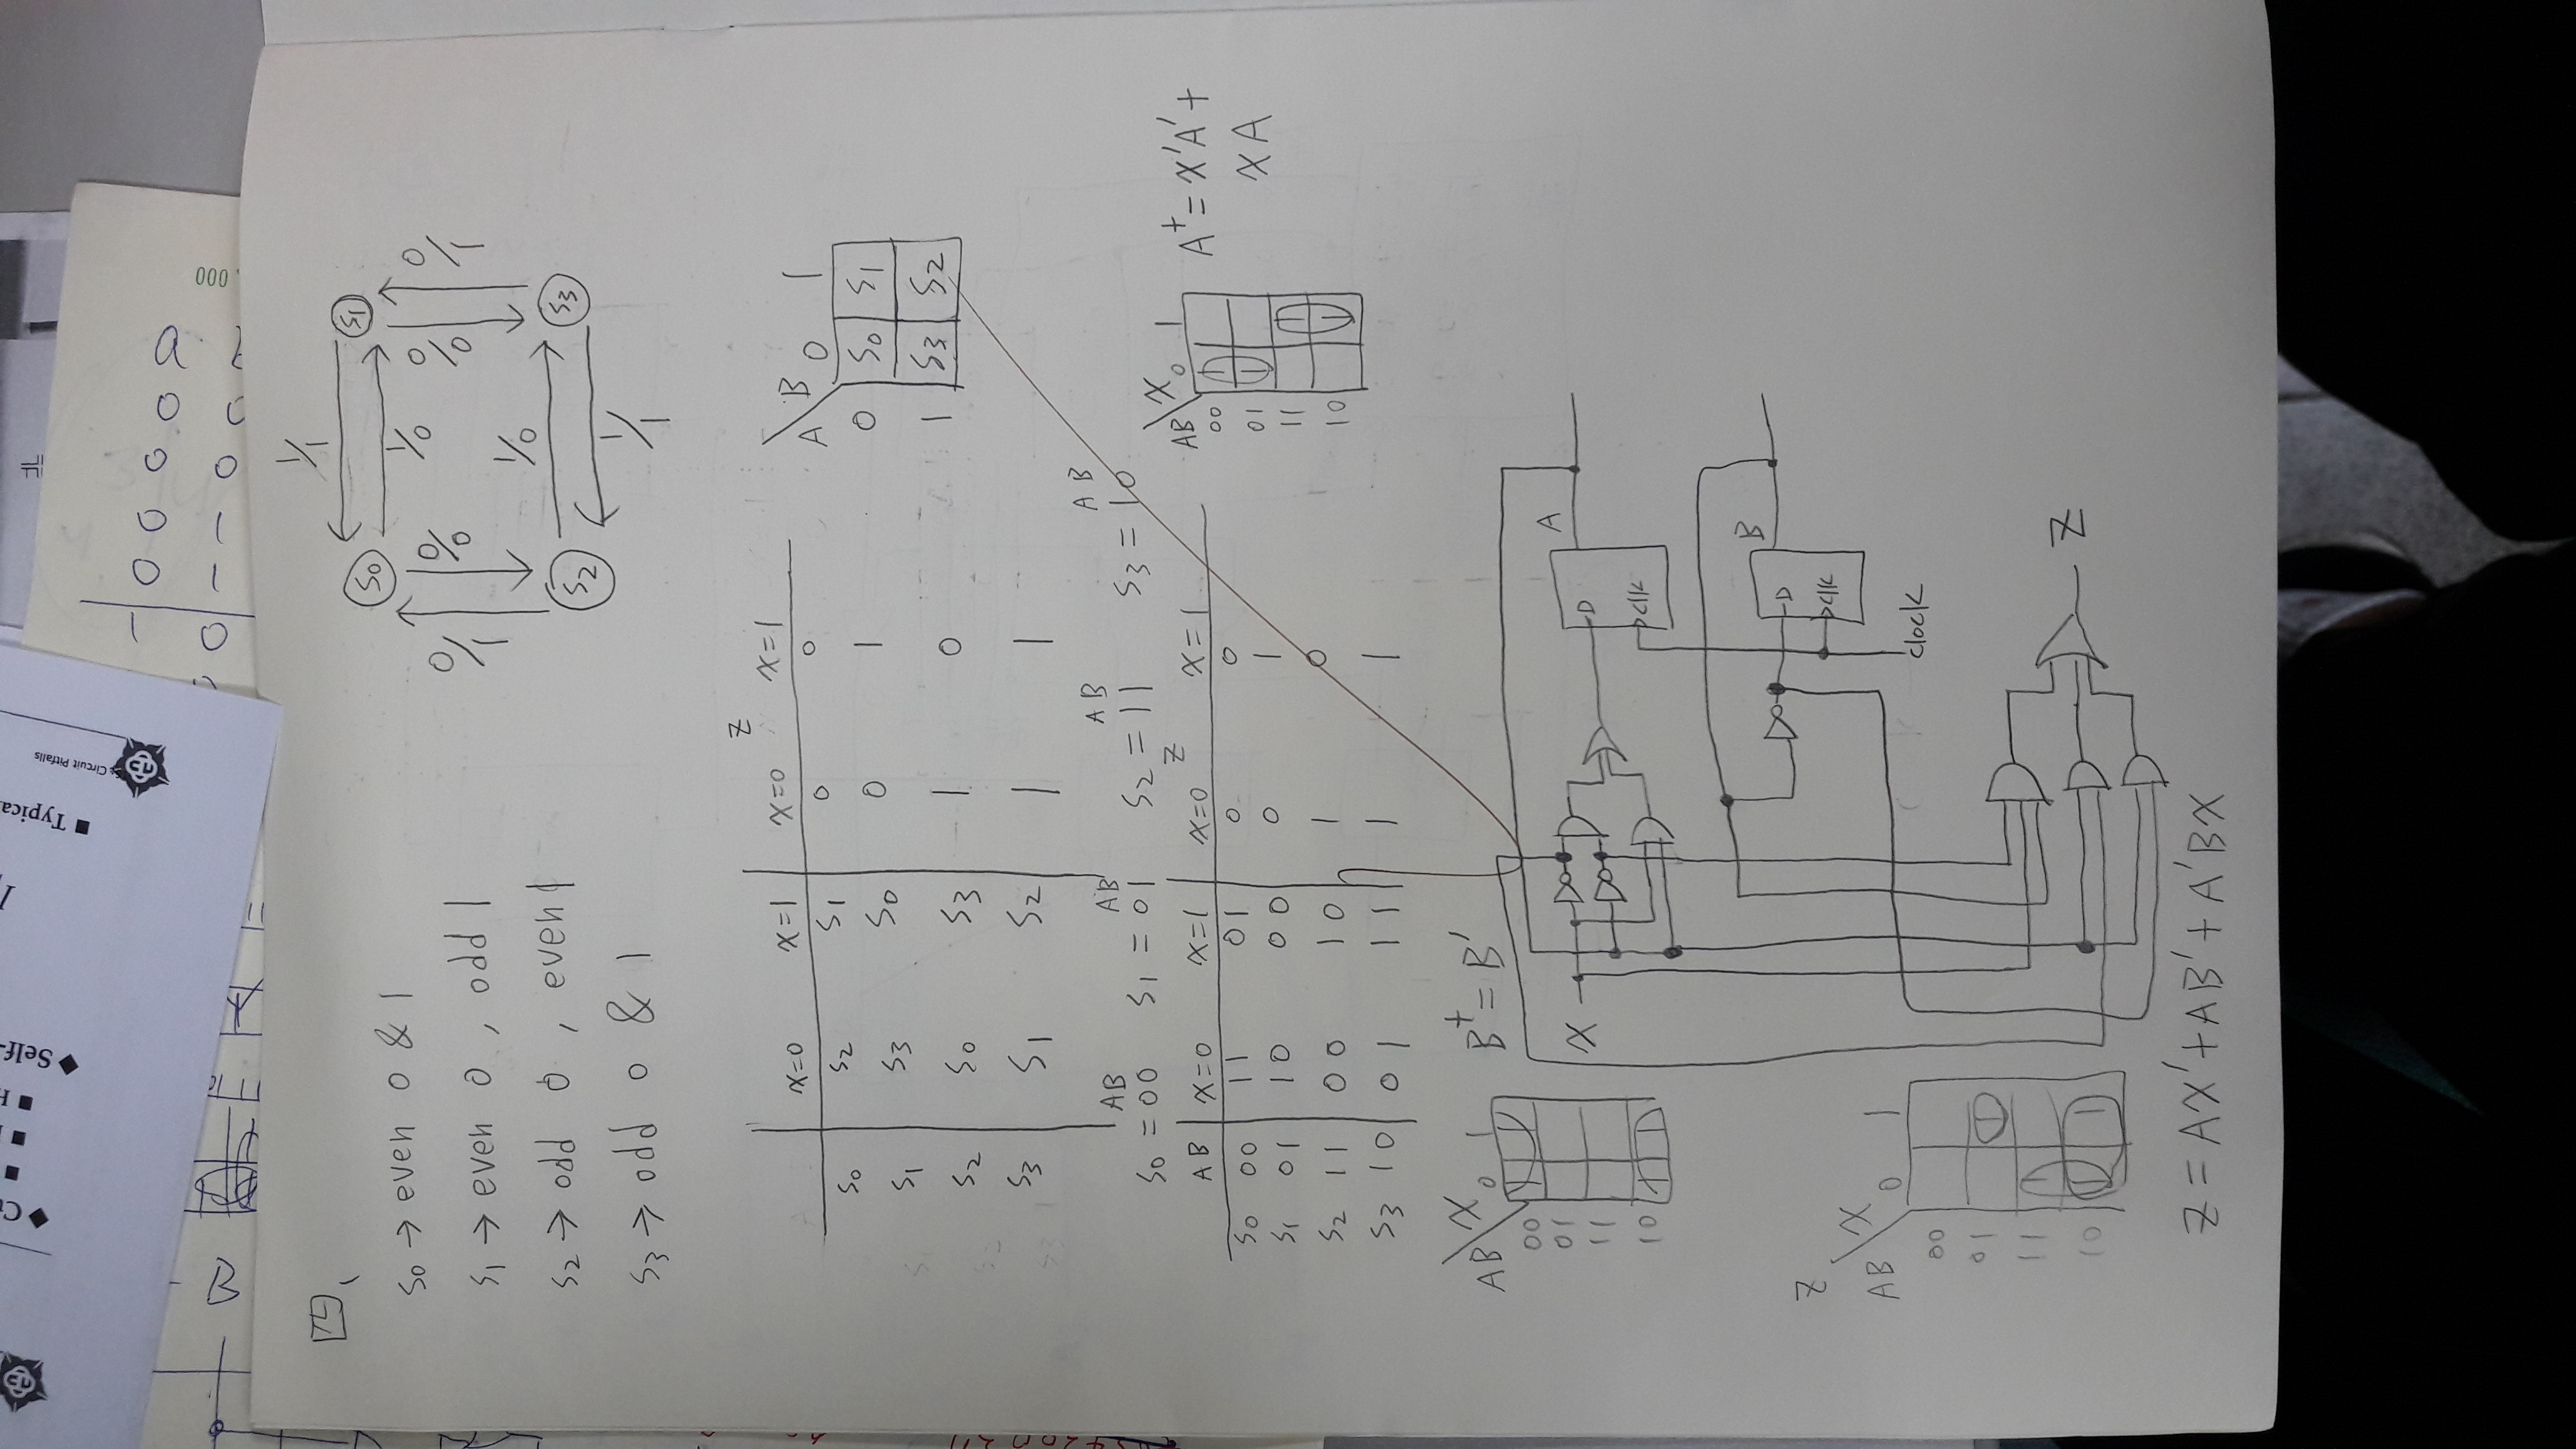 Self-
Typica
Circuit Pitfalls
000
S0 → even 0 & 1
S1 → even 0 , odd 1
S2 → odd 0 , even 1
S3 → odd 0 & 1
1/1
S0 S1
1/0
0/1 0/0 0/0 0/1
1/0
S2 S3
1/1
Z
x=0 x=1 x=0 x=1
S0 S2 S1 0 0
S1 S3 S0 0 1
S2 S0 S3 1 0
S3 S1 S2 1 1
A B 0 1
0 S0 S1
1 S3 S2
AB AB AB AB
S0 = 00 S1 = 01 S2 = 11 S3 = 10
Z
AB x=0 x=1 x=0 x=1
S0 00 11 01 0 0
S1 01 10 00 0 1
S2 11 00 10 1 0
S3 10 01 11 1 1
AB X 0 1
00 1
01 1
11 1
10 1
A⁺ = x'A' +
xA
AB X 0 1
00 1 1
01
11
10 1 1
B⁺ = B'
X
A
D
clk
B
D
clk
clock
Z
AB X 0 1
00
01 1
11 1
10 1 1
Z
Z = AX' + AB' + A'BX